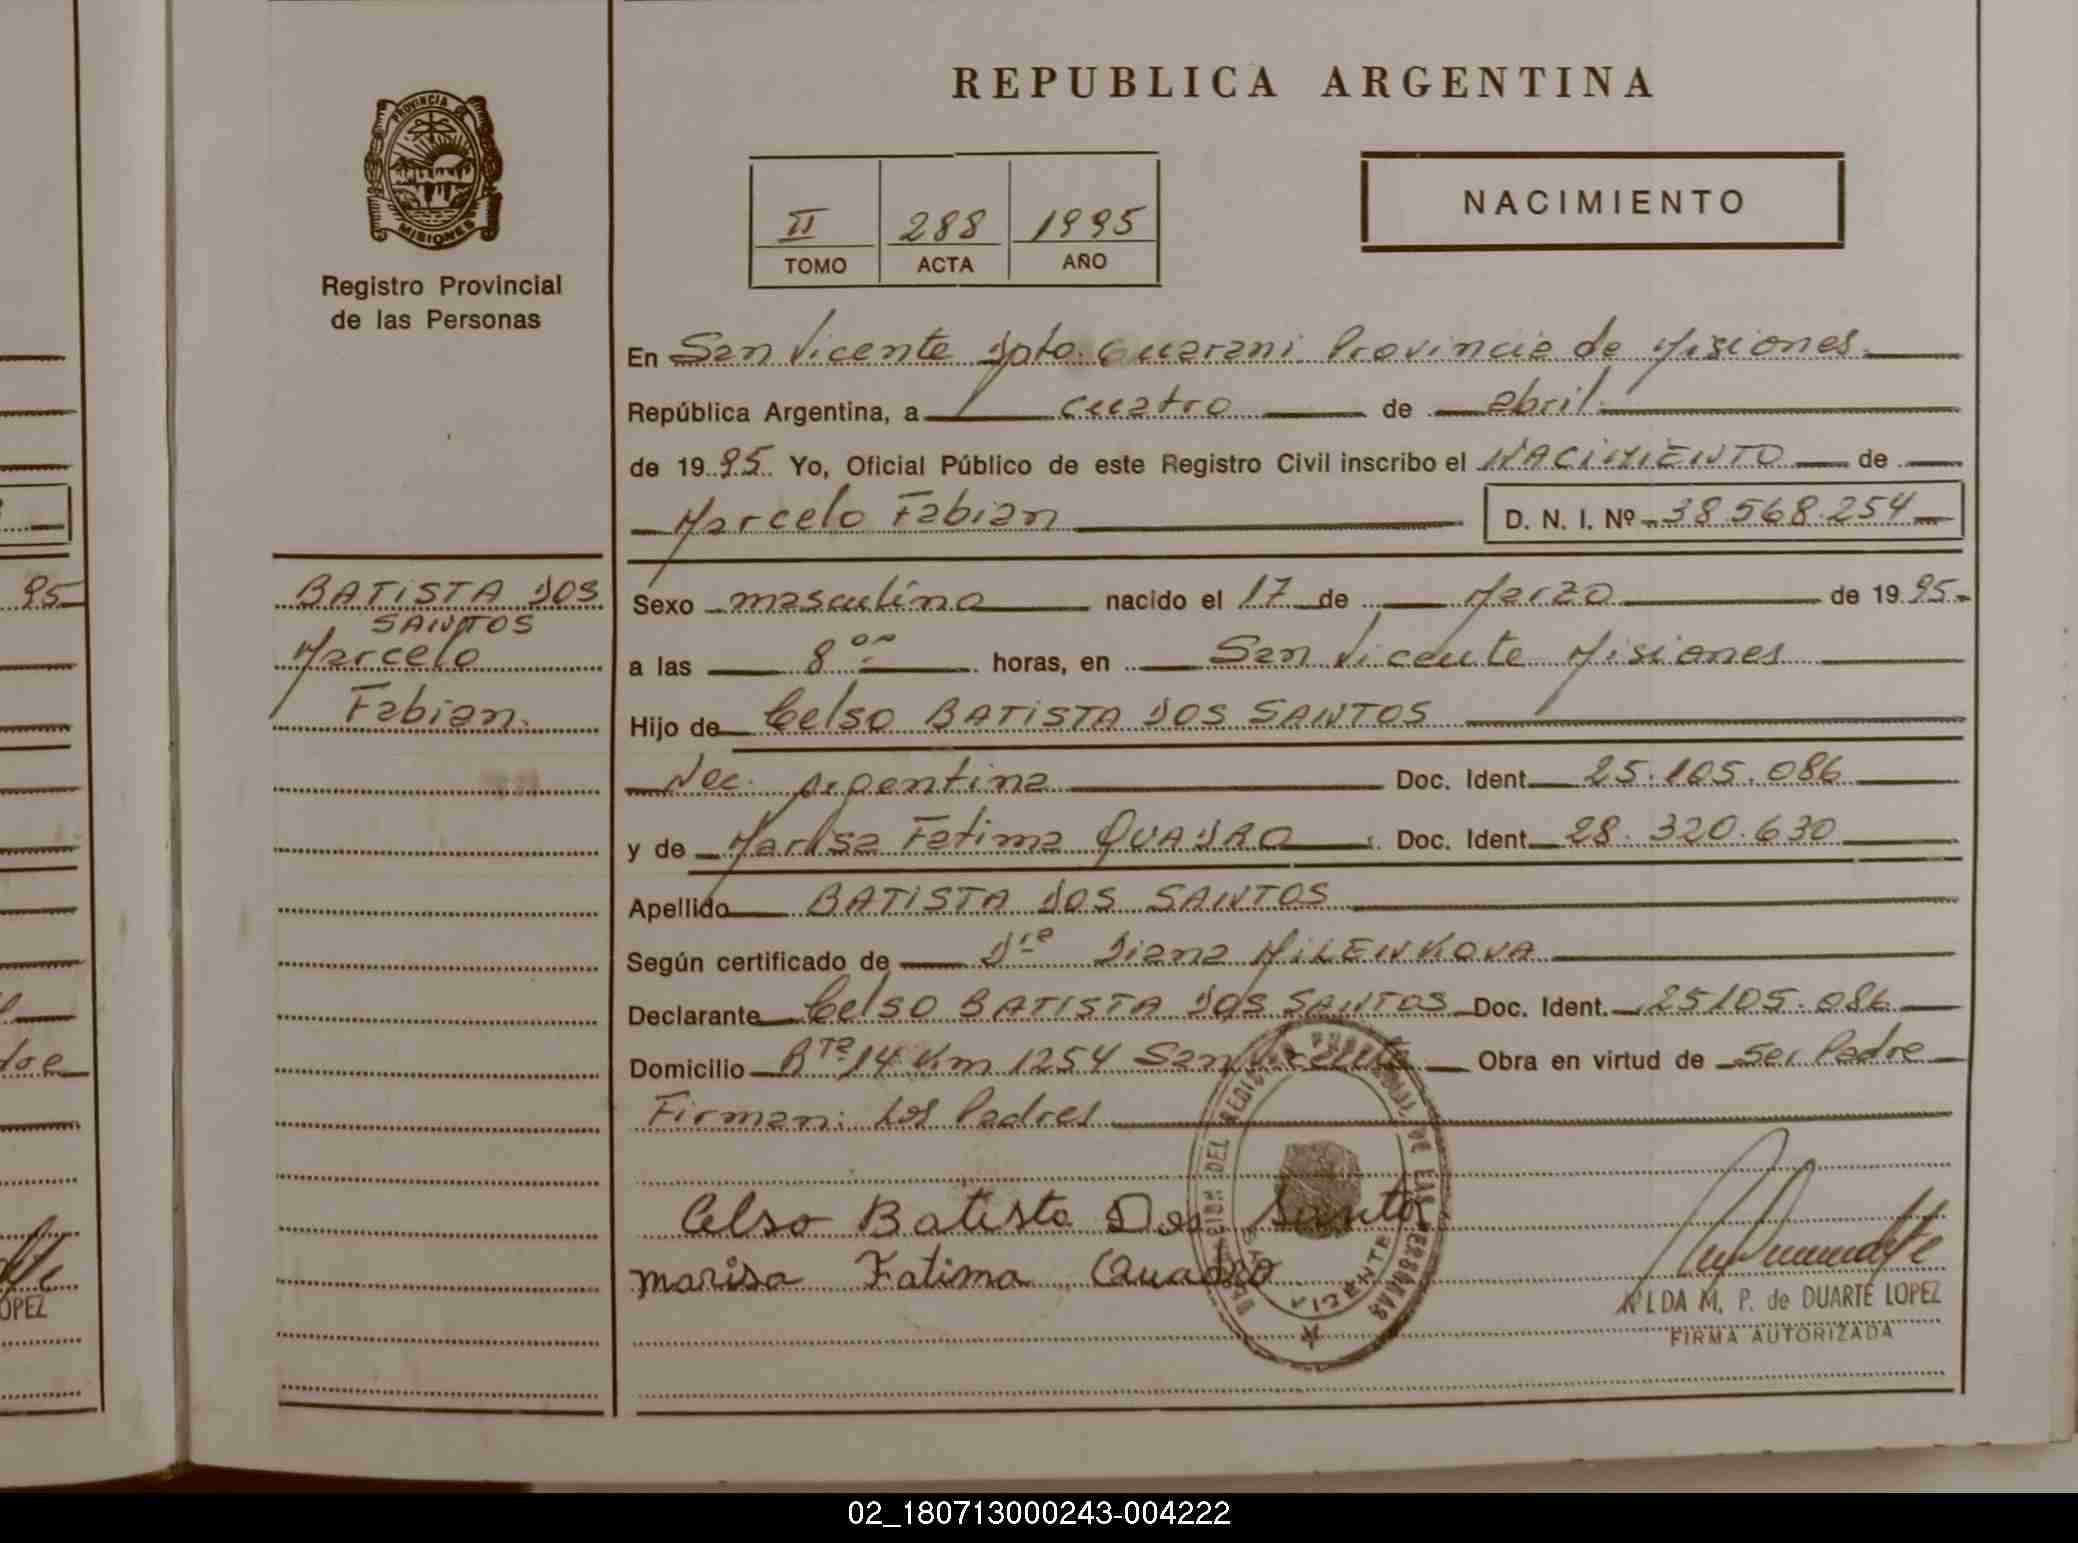 REPUBLICA ARGENTINA
PROVINCIA DE
MISIONES
Registro Provincial
de las Personas
II 288 1995
TOMO ACTA AÑO
NACIMIENTO
En San Vicente Dpto. Guarani Provincia de Misiones
República Argentina, a cuatro de abril
de 1995 Yo, Oficial Público de este Registro Civil inscribo el NACIMIENTO de
Marcelo Fabian D. N. I. Nº 38.568.254
BATISTA DOS
SANTOS
Marcelo
Fabian.
Sexo masculino nacido el 17 de Marzo de 1995
a las 8 oo horas, en San Vicente Misiones
Hijo de Celso BATISTA DOS SANTOS
Nac. Argentina Doc. Ident. 25.105.086
y de Marisa Fatima QUADRO Doc. Ident. 28.320.630
Apellido BATISTA DOS SANTOS
Según certificado de Dra Diana MILENKOVA
Declarante Celso BATISTA DOS SANTOS Doc. Ident. 25105.086
Domicilio Rta 14 Km 1254 San Vicente Obra en virtud de ser Padre
Firman: Los Padres
Celso Batista Dos Santos
marisa Fatima Quadro
DEL PROVINCIAL DE LAS PERSONAS
VICENTE
M. P. de DUARTE LOPEZ
FIRMA AUTORIZADA
95
OPEZ
02_180713000243-004222